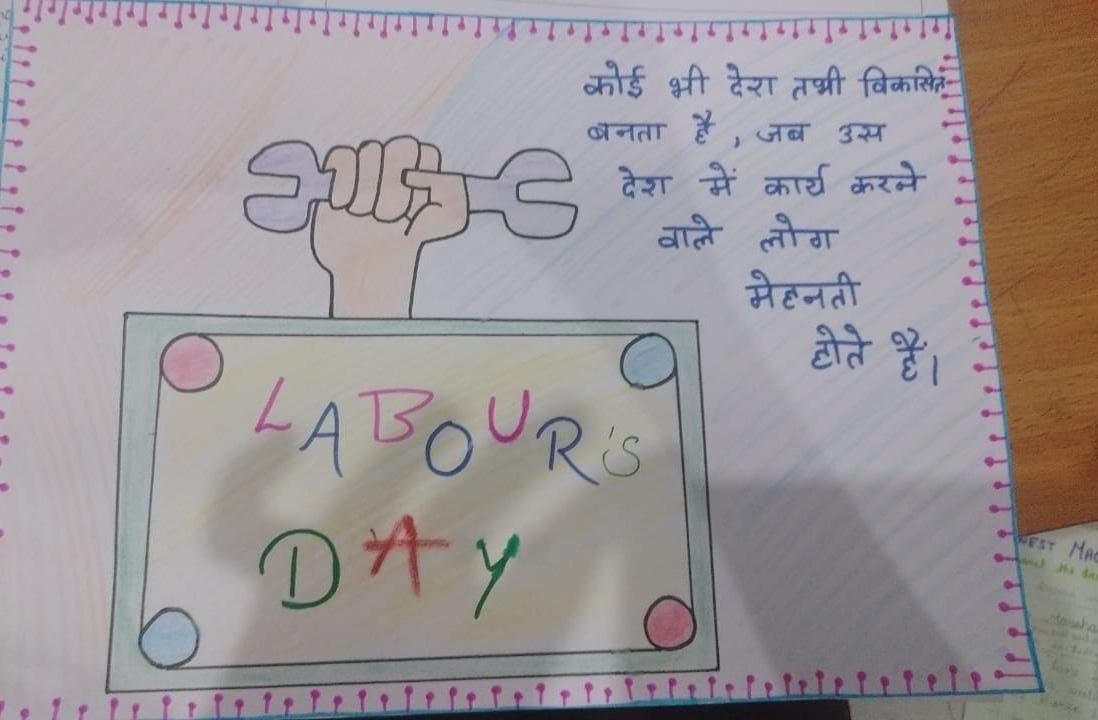 कोई भी देश तभी विकासित
बनता है, जब उस
देश में कार्य करने
वाले लोग
मेहनती
होते हैं।
LABOUR'S
DAY